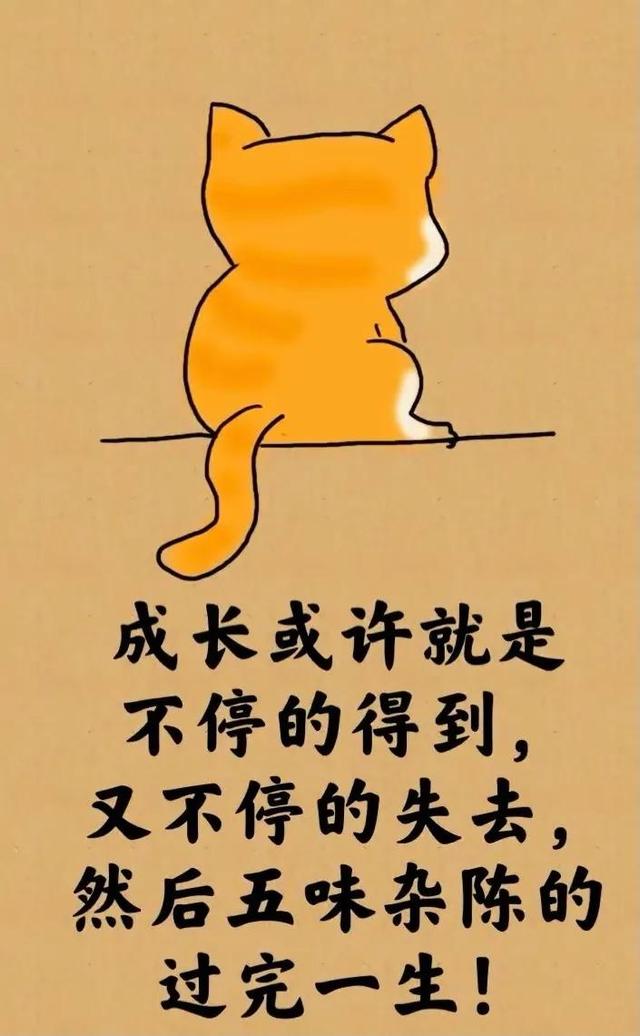 成长或许就是
不停的得到，
又不停的失去，
然后五味杂陈的
过完一生！